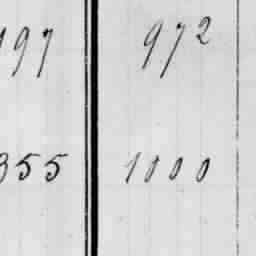 197 972
355 1000